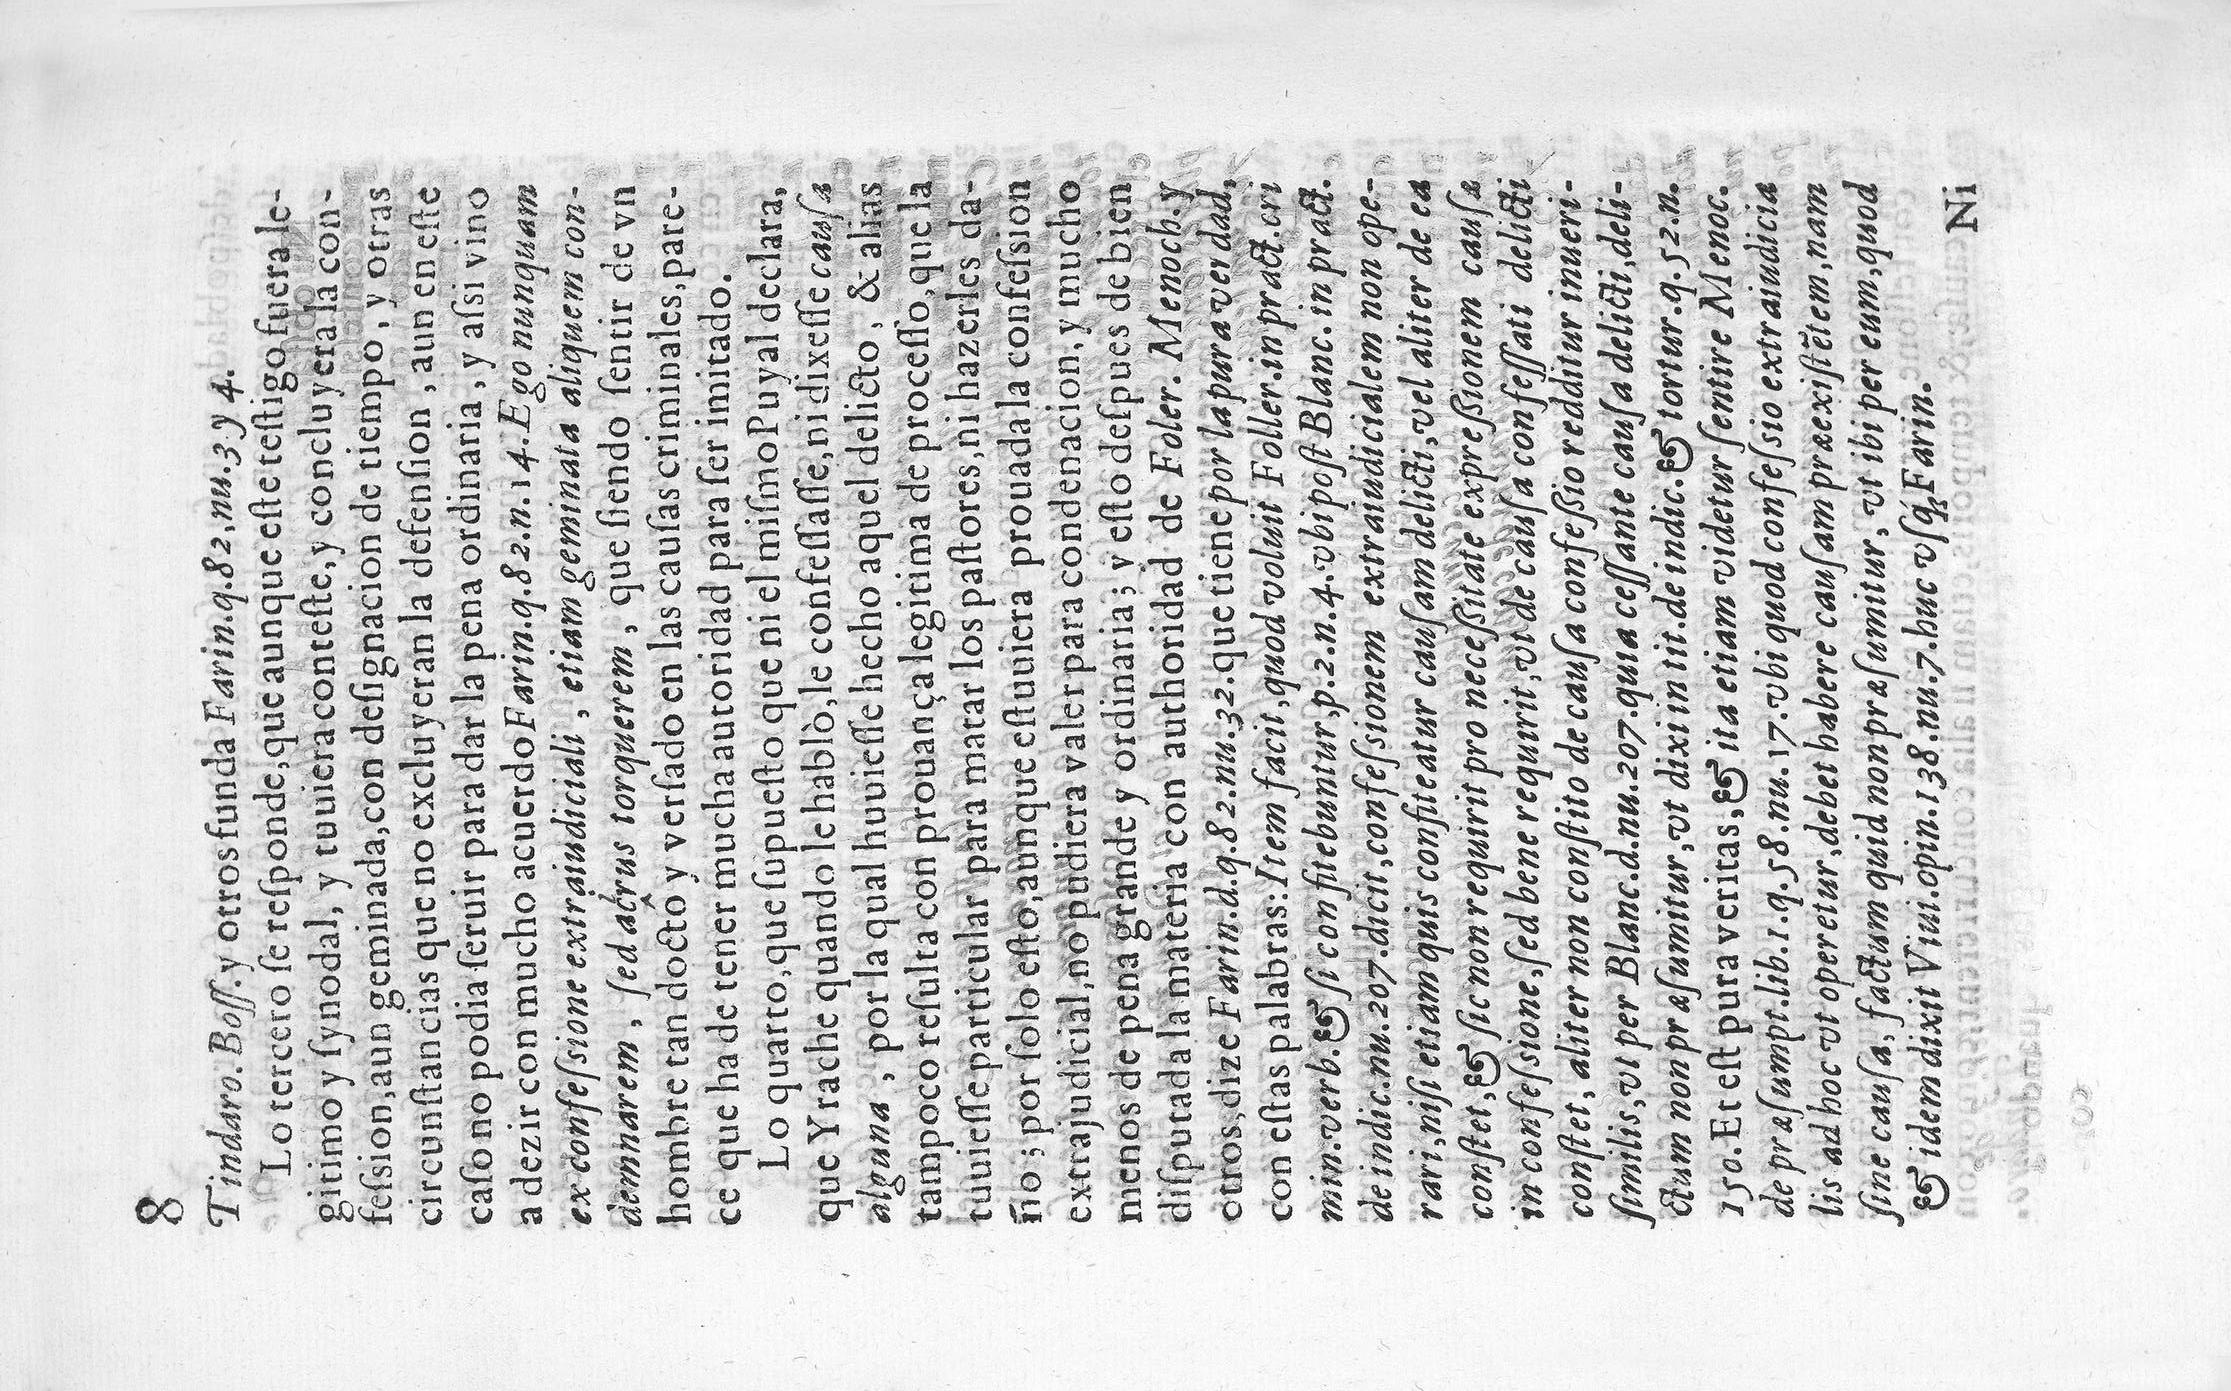 8
Tindaro. Boſſ. y otros funda Farin.q.82,nu.3 y 4.
Lo tercero ſe reſponde, que aunque eſte teſtigo fuera le-
gitimo y ſynodal, y tuuiera conteſte, y concluyera la con-
feſsion, aun geminada, con deſignacion de tiempo, y otras
circunſtancias que no excluyeran la defenſion, aun en eſte
caſo no podia ſeruir para dar la pena ordinaria, y aſsi vino
a dezir con mucho acuerdo Farin.q.82.n.14. Ego nunquam
ex confeſsione extraiudiciali, etiam geminata aliquem con-
demnarem, ſed acrus torquerem, que ſiendo ſentir de vn
hombre tan docto y verſado en las cauſas criminales, pare-
ce que ha de tener mucha autoridad para ſer imitado.
Lo quarto, que ſupueſto que ni el miſmo Puyal declara,
que Yrache quando le hablò, le confeſſaſſe, ni dixeſſe cauſa
alguna, por la qual huuieſſe hecho aquel delicto, & alias
tampoco reſulta con prouança legitima de proceſſo, que la
tuuieſſe particular para matar los paſtores, ni hazerles da-
ño; por ſolo eſto, aunque eſtuuiera prouada la confeſsion
extrajudicial, no pudiera valer para condenacion, y mucho
menos de pena grande y ordinaria; y eſto deſpues de bien
diſputada la materia con authoridad de Foler. Menoch. y
otros, dize Farin.d.q.82.nu.32. que tiene por la pura verdad,
con eſtas palabras: Item facit, quod voluit Foller.in pract.cri
min.verb.& ſi confitebuntur,p.2.n.4.vbi poſt Blanc.in pract.
de indic.nu.207.dicit, confeſsionem extraiudicialem non ope-
rari, niſi etiam quis confiteatur cauſam delicti, vel aliter de ea
conſtet, & ſic non requirit pro neceſſitate expreſſionem cauſæ
in confeſsione, ſed bene requirit, vt de cauſa confeſſati delicti
conſtet, aliter non conſtito de cauſa confeſsio redditur inueri-
ſimilis, vt per Blanc.d.nu.207.quia ceſſante cauſa delicti, deli-
ctum non præſumitur, vt dixi in tit.de indic.& tortur.q.52.n.
150. Et eſt pura veritas, & ita etiam videtur ſentire Menoc.
de præſumpt.lib.1.q.58.nu.17.vbi quod confeſsio extraiudicia
lis ad hoc vt operetur, debet habere cauſam præexiſtẽtem, nam
ſine cauſa, factum quid non præſumitur, vt ibi per eum, quod
& idem dixit Viui.opin.138.nu.7.huc vſq́; Farin.
Ni